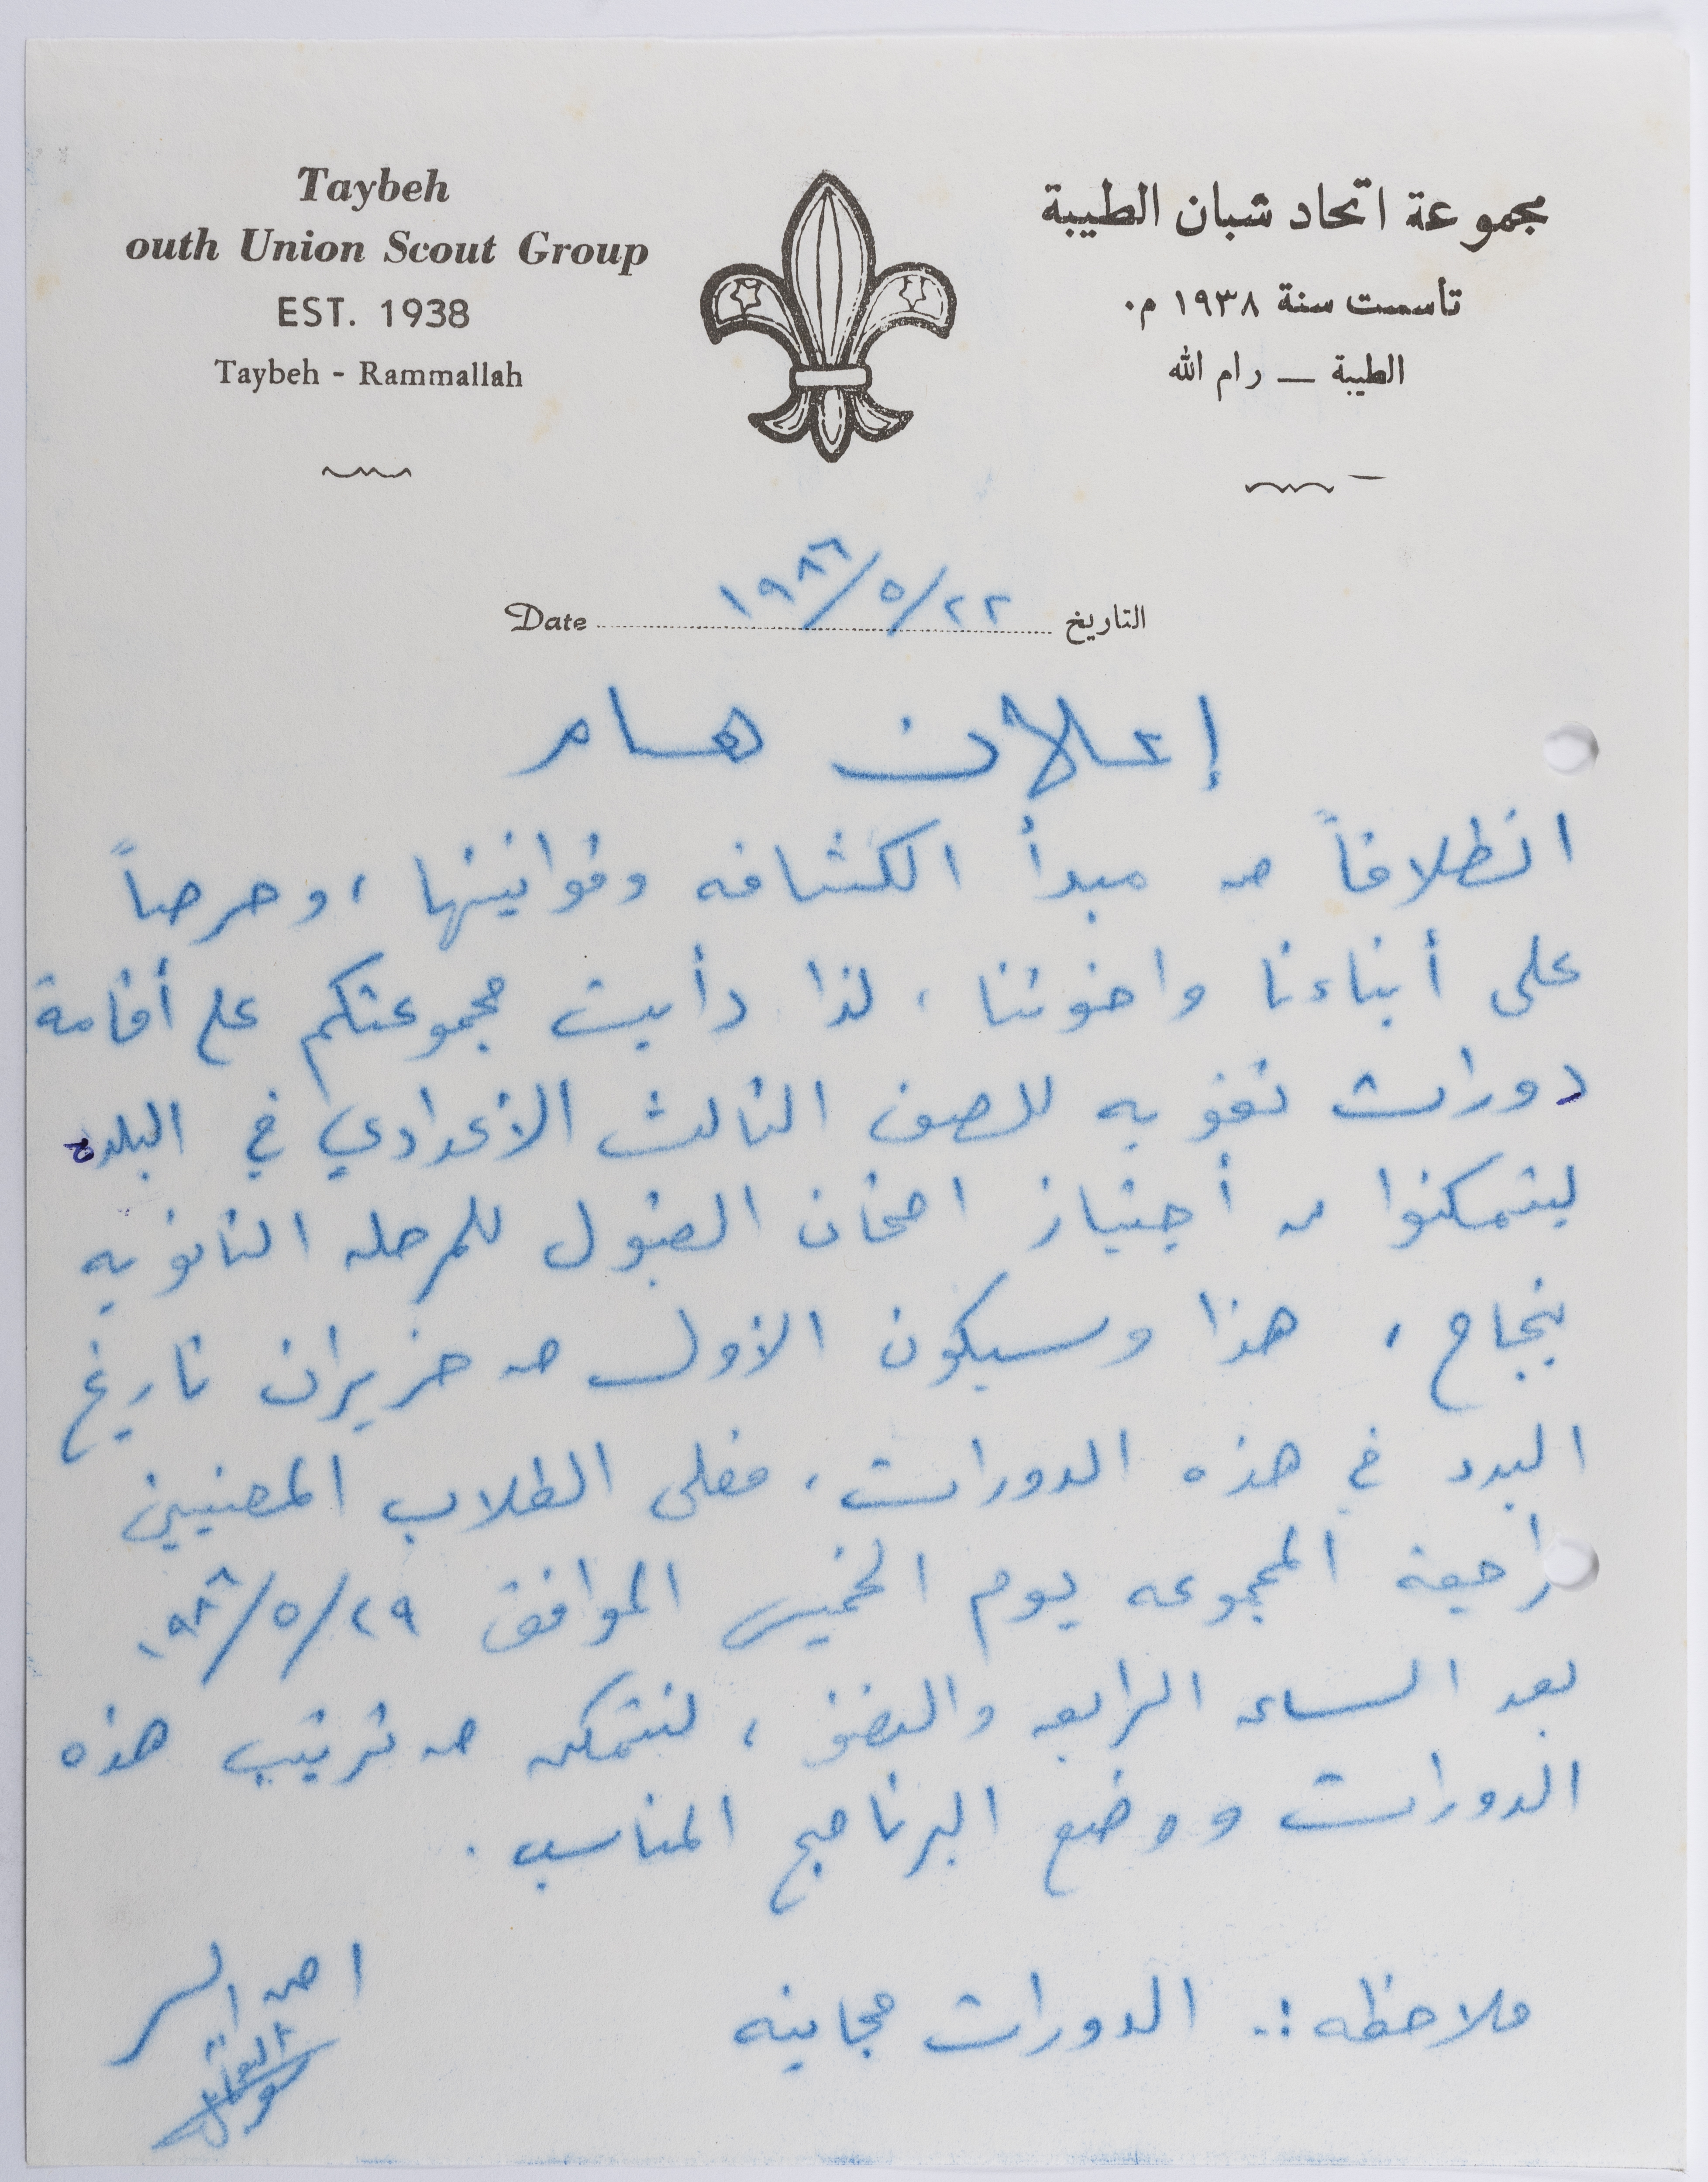 Taybeh
outh Union Scout Group
EST. 1938
Taybeh - Rammallah
مجموعة اتحاد شبان الطيبة
تأسست سنة ١٩٣٨ م.
الطيبة — رام الله
Date ١٩٨٦/٥/٢٢ التاريخ
إعلان هام
انطلاقاً من مبدأ الكشافه وقوانينها ، وحرصاً
على أبناءنا واخوتنا ، لذا دأبت مجموعتكم على أقامة
دورات تقويه للصف الثالث الأعدادي في البلده
ليتمكنوا من أجتياز امتحان القبول للمرحله الثانويه
بنجاح ، هذا وسيكون الاول من حزيران تاريخ
البدء في هذه الدورات ، فعلى الطلاب المعنيين
راجعة المجموعه يوم الخميس الموافق ٢٩/٥/١٩٨٦
بعد الساعه الرابعه والنصف ، لنتمكن من ترتيب هذه
الدورات ووضع البرنامج المناسب .
ملاحظه :. الدورات مجانيه
امين السر